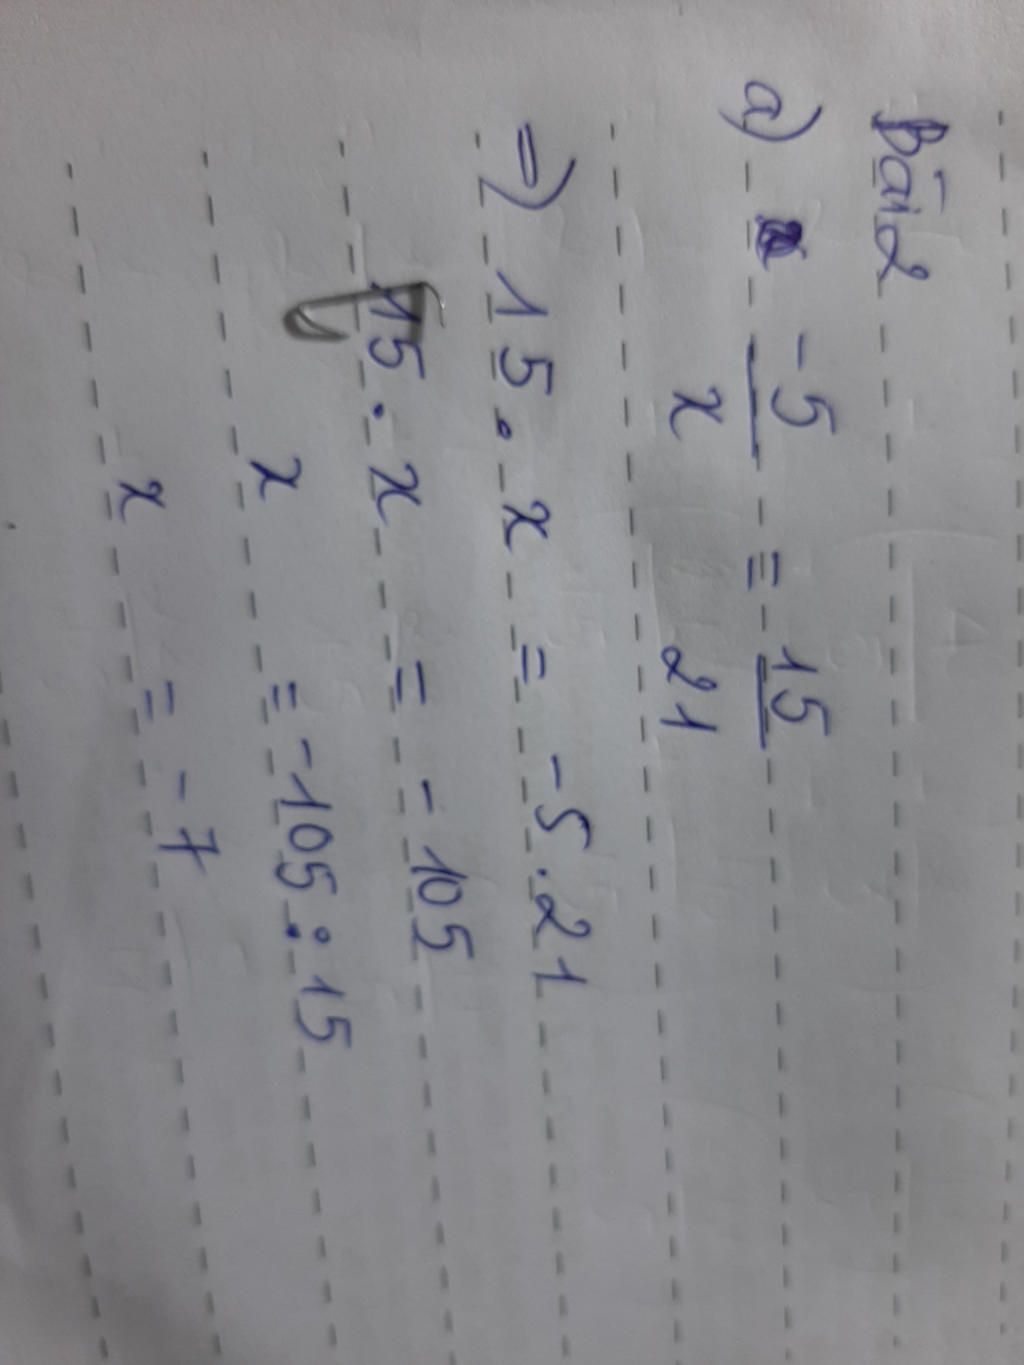 Bài 2
a) -5/x = 15/21
=) 15 . x = -5 . 21
15 . x = -105
x = -105 : 15
x = -7